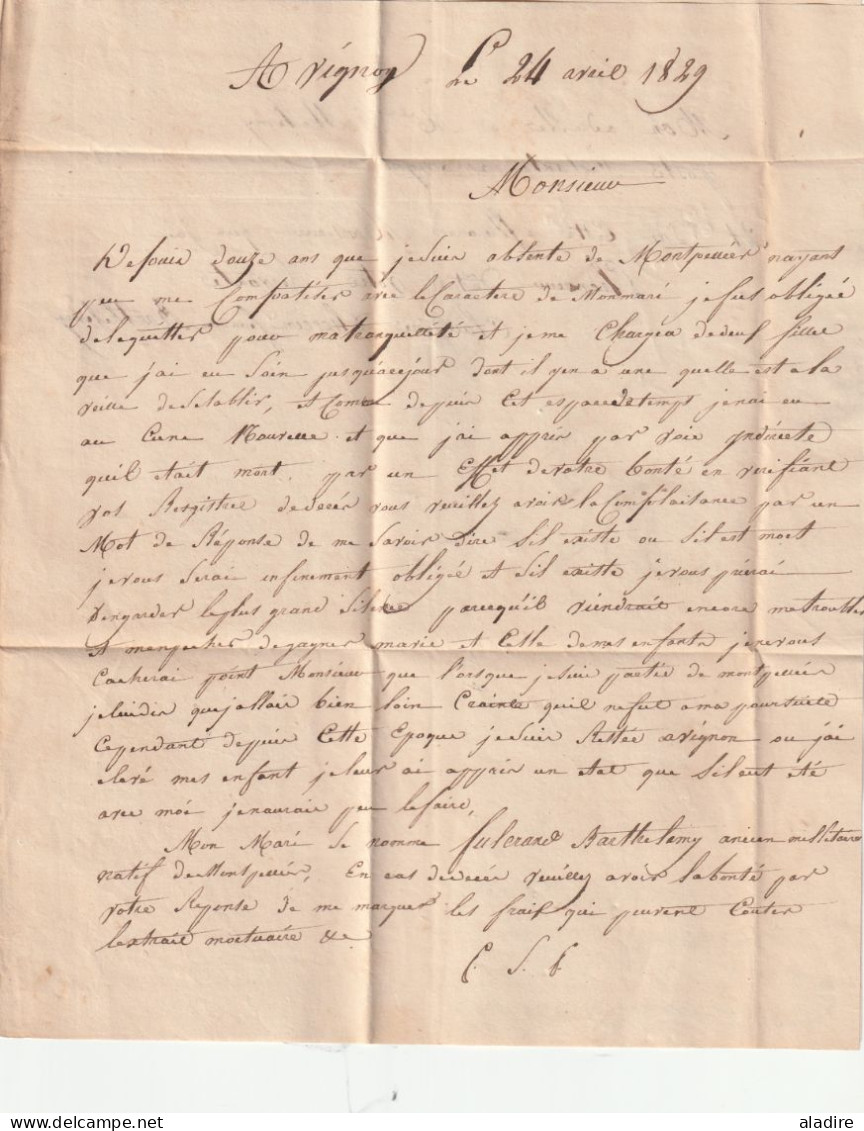 Avignon Le 24 avril 1829
Monsieur
Depuis douze ans que jesuis absente de Montpellier nayant
peu me Compatiser avec le Caractere de Monmari jefus obligée
delequitter pour matranquillité et jeme Chargea dedeux filles
que j'ai eu Soin jusquacejour dont il yen a une quelle est a la
veille desetablir, et Come depuis Cet espacedetempt jenai eu
au Cune Nouvelle et que j'ai appris par voie yndirecte
quil etait mort. par un Effet devotre bonté en verifiant
vos Registres dedecés vous veuillez avoir la Complaisance par un
Mot de Réponse de me Savoir dire Sil existe ou Sil est mort
jevous Serai infiniment obligée et Sil existe jevous prierai
dengarder leplus grand Silence parcequ'il viendrait encore metroubler
et mempecher degagner mavie et Celle demes enfants jenevous
Cacherai point Monsieur que l'orsque jesuis partie de montpellier
jeluidis quejallais bien loin Crainte quil nefut ama poursuite
Cependant depuis Cette Epoque jesuis Restée avignon ou j'ai
elevé mes enfant jeleur ai appris un etat que Sileut été
avec moi jenaurais peu lefaire,
Mon Mari Se nomme fulcrand Barthelemy ancien millitaire
natif deMontpellier. En cas dedecés veuillez avoir labonté par
votre Réponse de me marquer les frais qui peuvent Couter
lextrait mortuaire &c
aladire